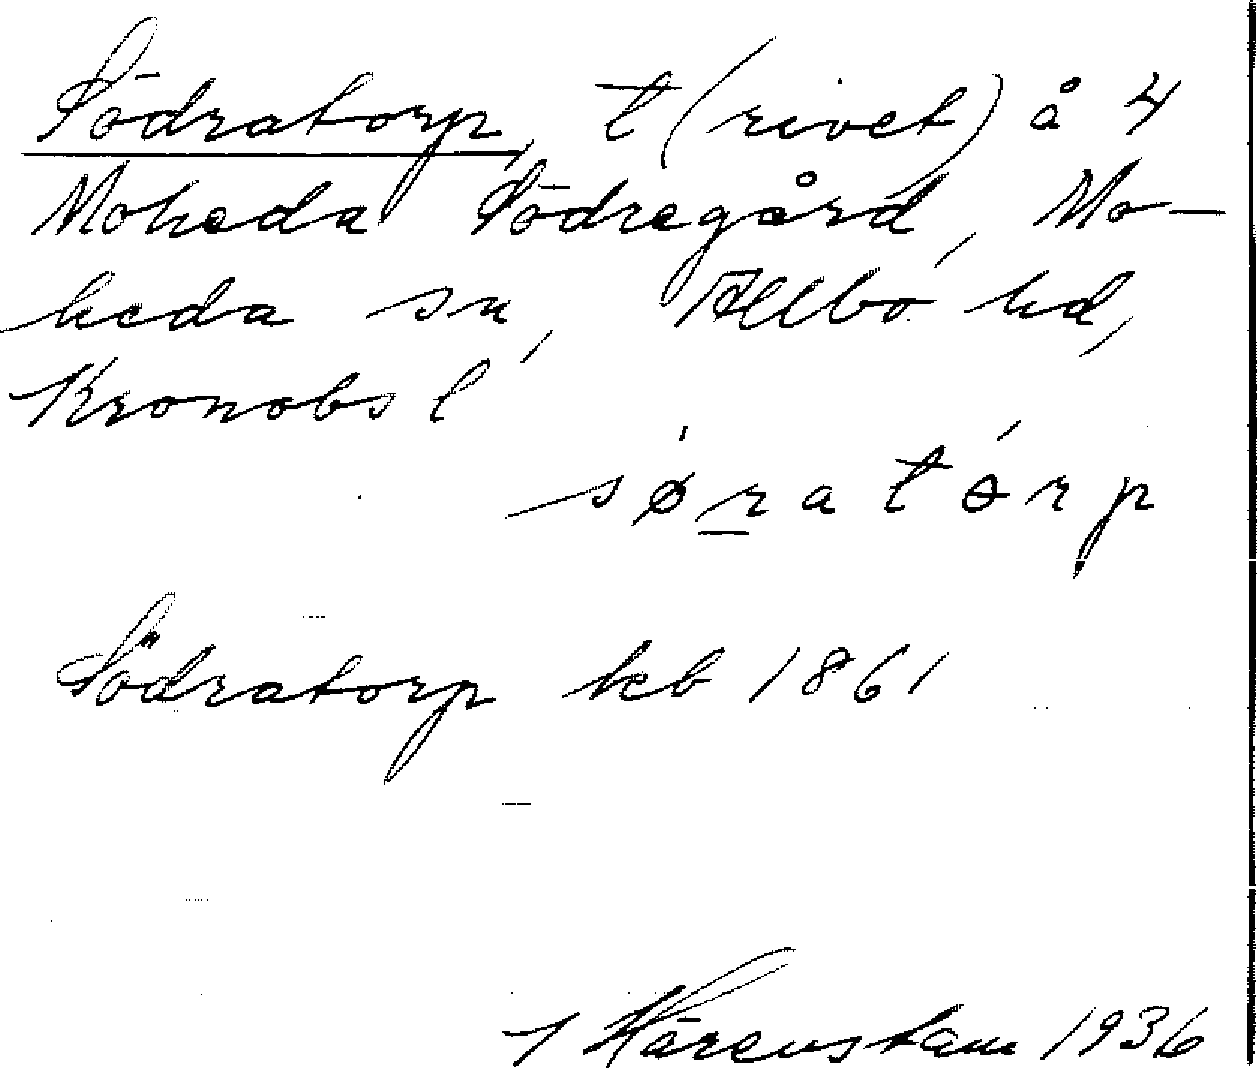 Södratorp, t (rivet) å 4
Moheda Södregård, Mo-
heda sn, Allbo hd,
Kronobs l
sǿratórp
Södratorp kb 1861
Härenstam 1936